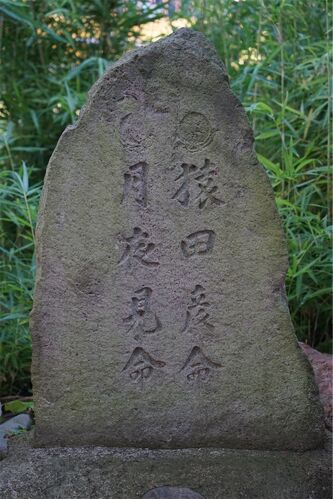 猿田彦命
月夜見命